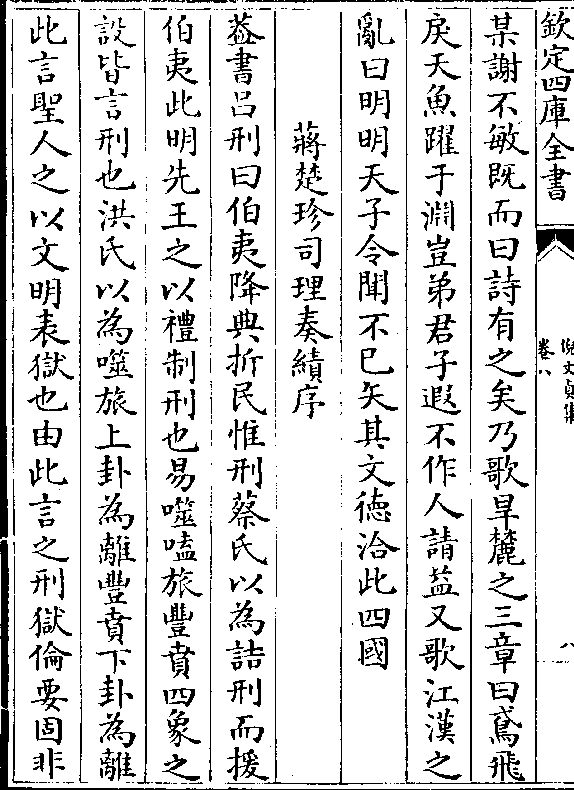 欽定四庫全書
倪文貞集
卷八
八
某謝不敏既而曰詩有之矣乃歌旱麓之三章曰鳶飛
戾天魚躍于淵豈弟君子遐不作人請益又歌江漢之
亂曰明明天子令聞不已矢其文德洽此四國
蔣楚珍司理奏績序
葢書吕刑曰伯夷降典折民惟刑蔡氏以為詰刑而援
伯夷此明先王之以禮制刑也易噬嗑旅豐賁四象之
設皆言刑也洪氏以為噬旅上卦為離豐賁下卦為離
此言聖人之以文明表獄也由此言之刑獄倫要固非